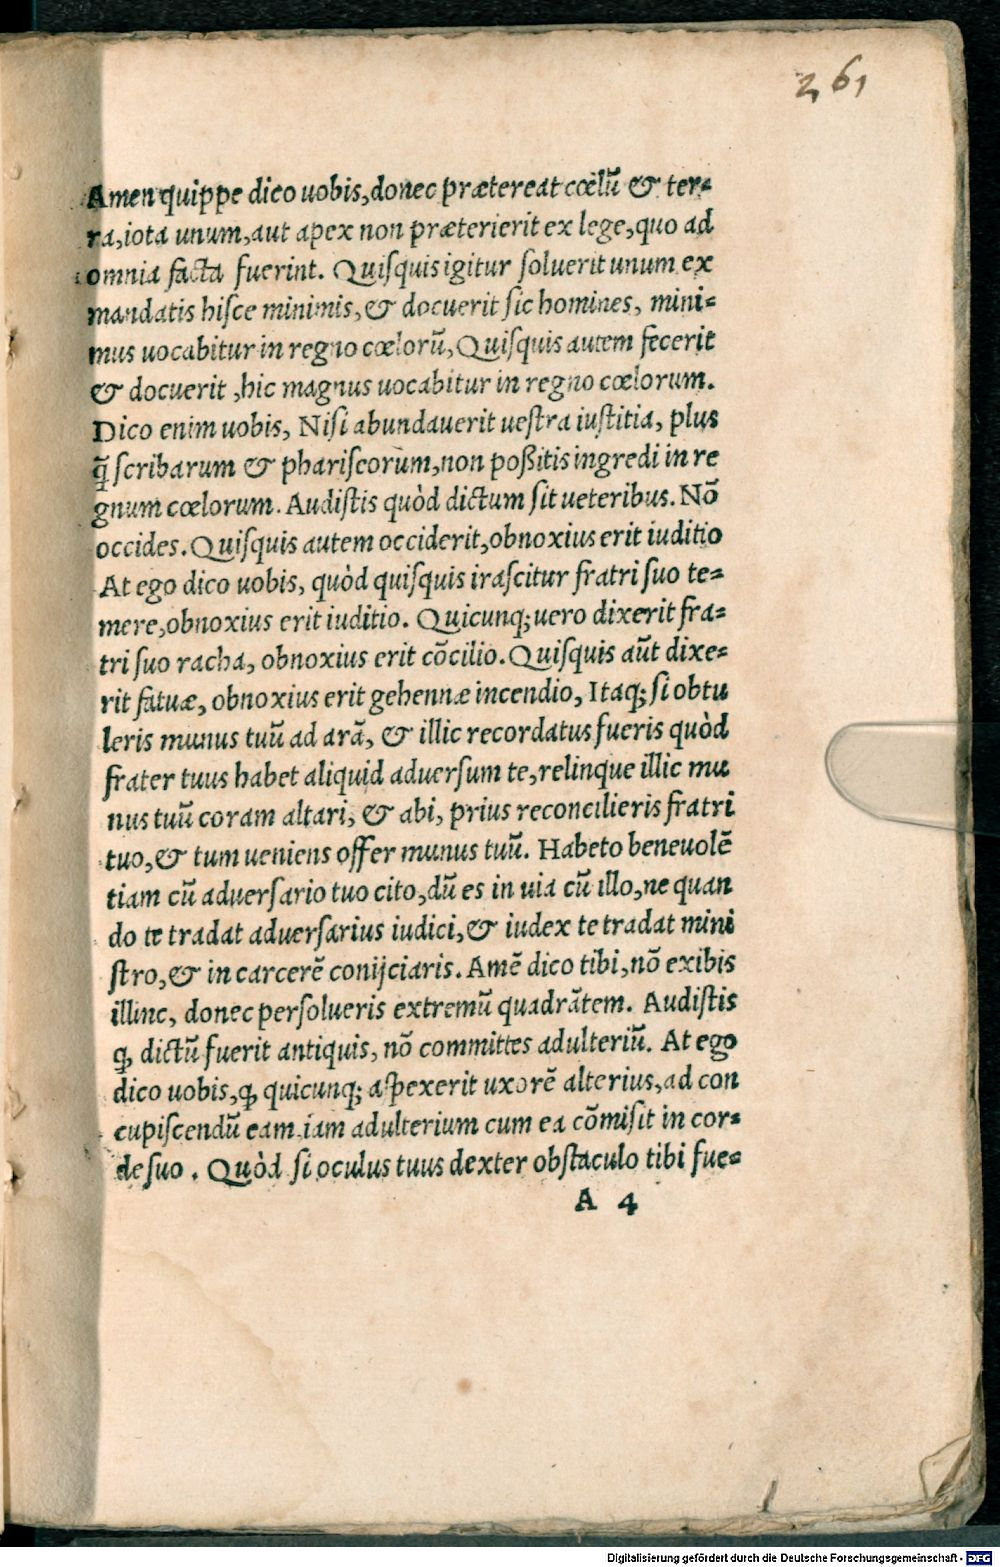 261
Amen quippe dico uobis, donec prætereat cœlũ & ter-
ra, iota unum, aut apex non præterierit ex lege, quo ad
omnia facta fuerint. Quiſquis igitur ſoluerit unum ex
mandatis hiſce minimis, & docuerit ſic homines, mini-
mus uocabitur in regno cœlorũ, Quiſquis autem fecerit
& docuerit, hic magnus uocabitur in regno cœlorum.
Dico enim uobis, Niſi abundauerit ueſtra iuſtitia, plus
q̃ ſcribarum & phariſeorum, non poßitis ingredi in re
gnum cœlorum. Audiſtis quòd dictum ſit ueteribus. Nõ
occides. Quiſquis autem occiderit, obnoxius erit iuditio
At ego dico uobis, quòd quiſquis iraſcitur fratri ſuo te-
mere, obnoxius erit iuditio. Quicunq; uero dixerit fra-
tri ſuo racha, obnoxius erit cõcilio. Quiſquis aũt dixe-
rit fatuæ, obnoxius erit gehennæ incendio, Itaq; ſi obtu
leris munus tuũ ad arã, & illic recordatus fueris quòd
frater tuus habet aliquid aduerſum te, relinque illic mu
nus tuũ coram altari, & abi, prius reconcilieris fratri
tuo, & tum ueniens offer munus tuũ. Habeto beneuolẽ
tiam cũ aduerſario tuo cito, dũ es in uia cũ illo, ne quan
do te tradat aduerſarius iudici, & iudex te tradat mini
ſtro, & in carcerẽ conijciaris. Amẽ dico tibi, nõ exibis
illinc, donec perſolueris extremũ quadrãtem. Audiſtis
ꝙ dictũ fuerit antiquis, nõ committes adulteriũ. At ego
dico uobis, ꝙ quicunq; aſpexerit uxorẽ alterius, ad con
cupiſcendũ eam, iam adulterium cum ea cõmiſit in cor-
de ſuo. Quòd ſi oculus tuus dexter obſtaculo tibi fue-
A 4
Digitalisierung gefördert durch die Deutsche Forschungsgemeinschaft - DFG